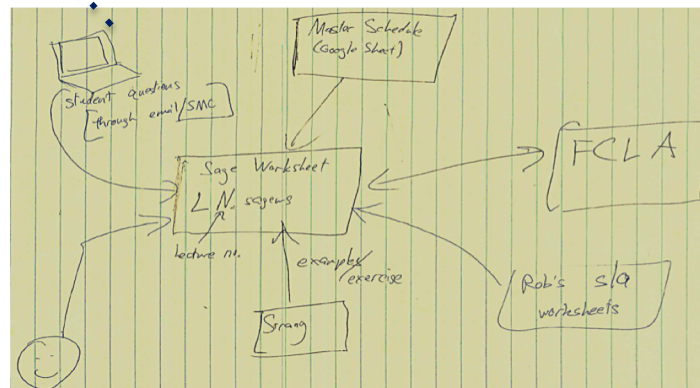 Master Schedule
(Google Sheet)
student questions
[through email/SMC]
Sage Worksheet
LN.sagews
lecture no.
examples/
exercise
Strang
FCLA
Rob's sla
worksheets